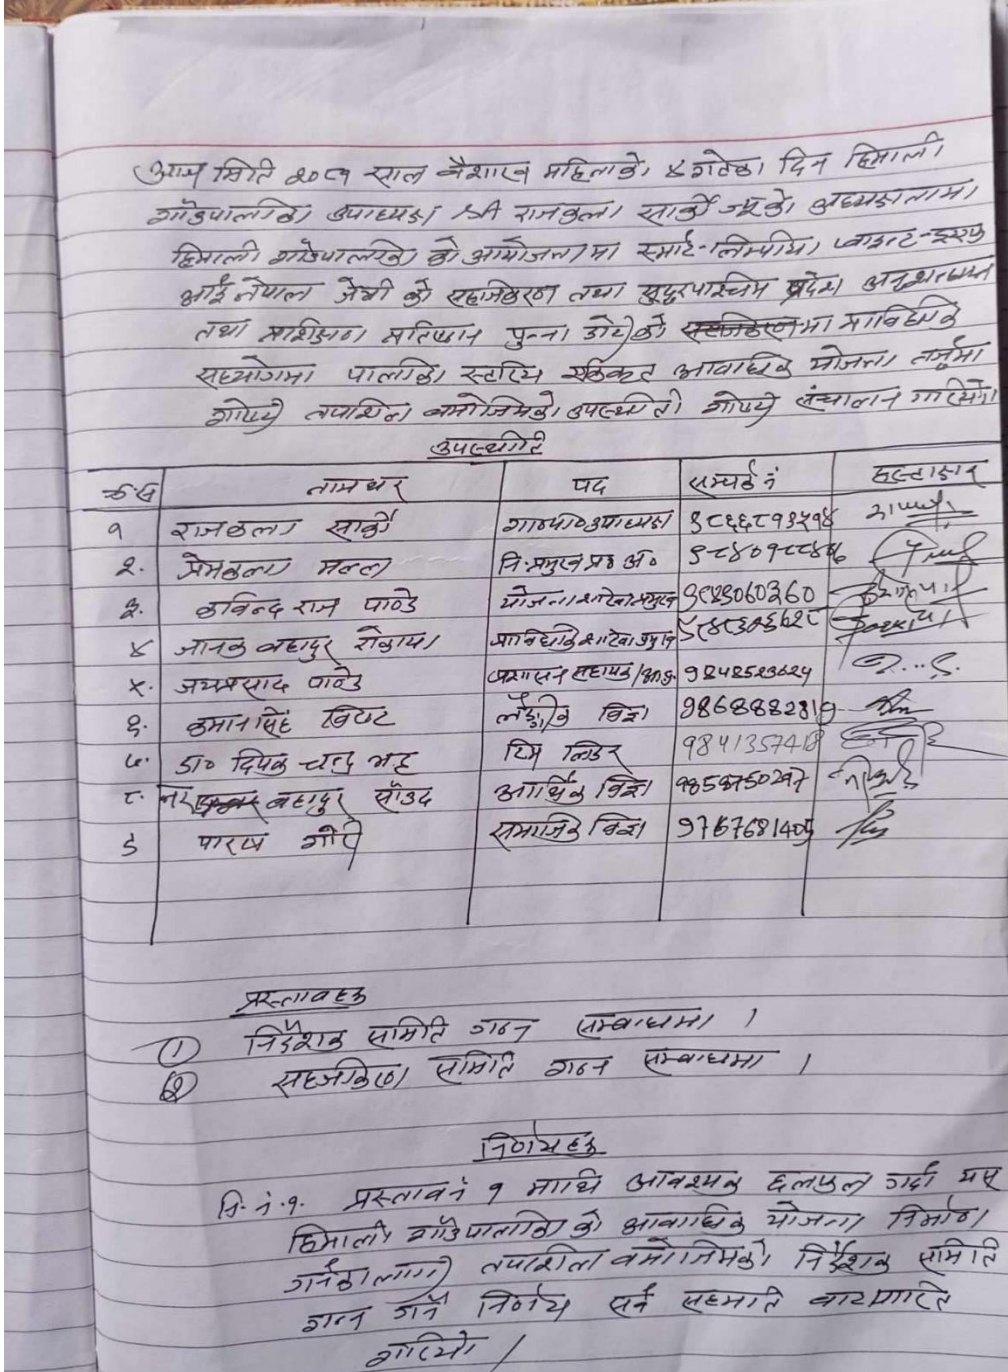 आज मिति २०८१ साल बैशाख महिनाको ४ गतेका दिन हिमाली
गाँउपालीका उपाध्यक्ष श्री राजकला सार्की ज्यूको अध्यक्षतामा
हिमाली गाउँपालिका को आयोजनामा स्मार्ट-लिम्पीया
आई नेपाल जेभी को सहजिकरण तथा सुदूरपाश्चिम प्रदेश अनुसन्धान
तथा प्राशिक्षण प्रतिष्ठान डोटीको प्राविधिक
सहयोगमा पालिका स्तरिय एकिकृत आवाधिक योजना तर्जुमा
गोष्ठी तपाशिल बमोजिमको उपस्थीती गोष्ठी संचालन गरियो।
उपस्थीति
क्र.सं नामथर पद सम्पर्क नं हस्ताक्षर
१ राजकला सार्की गा०पा०उपाध्यक्ष
२. प्रेमकला मल्ल नि.प्रमुख प्र० अ०
३. कविन्द्र राज पाण्डे योजना शाखा प्रमुख
४ जानक बहादुर रोकाया प्राविधिक शाखा प्रमुख
५. जयप्रसाद पाण्डे प्रशासन सहायक
६. कमानसिंह बिष्ट लैङ्गीक विज्ञ
७. डा० दिपक चन्द्र भट्ट टिम लिडर 9841357418
८. बहादुर साँउद आर्थिक विज्ञ 9858750297
९ पारस गिरी समाजिक विज्ञ 9767681405
प्रस्तावहरू
(1) निर्देशक समिति गठन सम्बन्धमा ।
(2) सहजीकरण समिति गठन सम्बन्धमा ।
निर्णयहरू
नि.नं.१. प्रस्ताव नं १ माथि आवश्यक छलफल गर्दा यस
हिमाली गाँउपालिका को आवाधिक योजना निर्माण
गर्नका लागी तपाशिल बमोजिमको निर्देशक समिति
गठन गर्ने निर्णय सर्व सहमति बाट पारित
गरियो ।